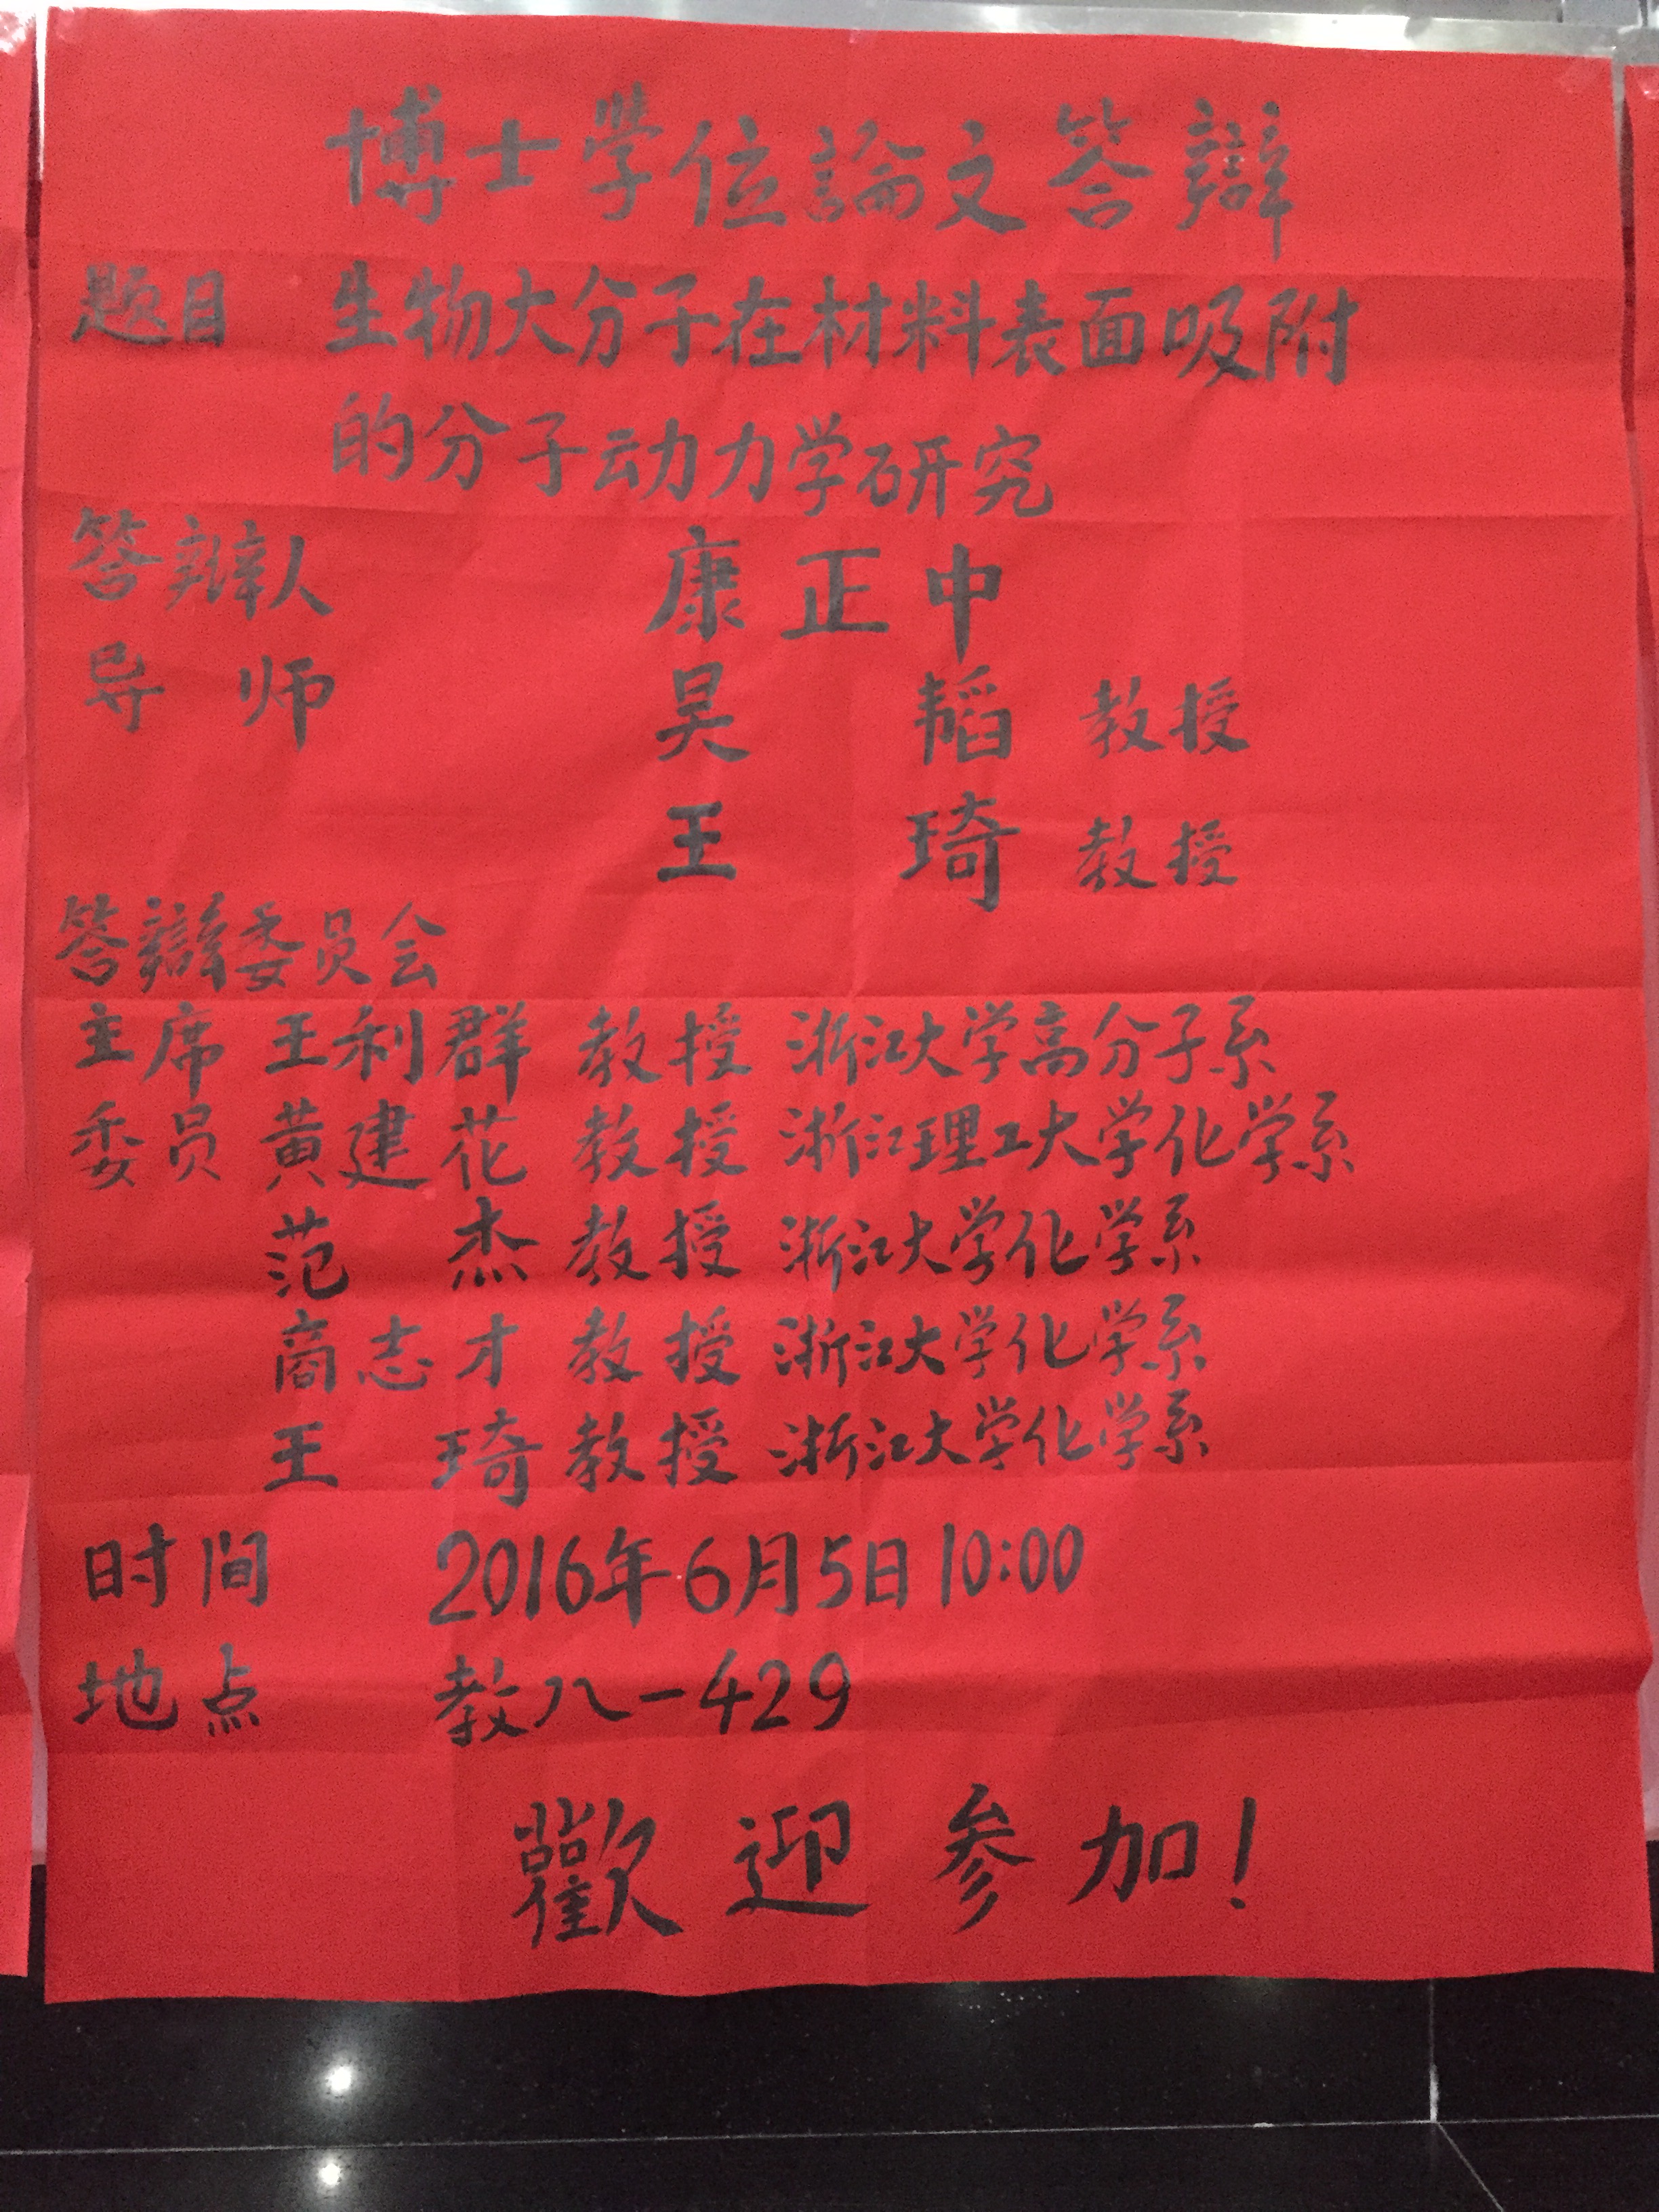 博士學位論文答辯
题目 生物大分子在材料表面吸附
的分子动力学研究
答辩人 康正中
导师 吴韬 教授
王琦 教授
答辯委员会
主席 王利群 教授 浙江大学高分子系
委员 黄建花 教授 浙江理工大学化学系
范杰 教授 浙江大学化学系
商志才 教授 浙江大学化学系
王琦 教授 浙江大学化学系
时间 2016年6月5日10:00
地点 教八-429
歡迎参加!